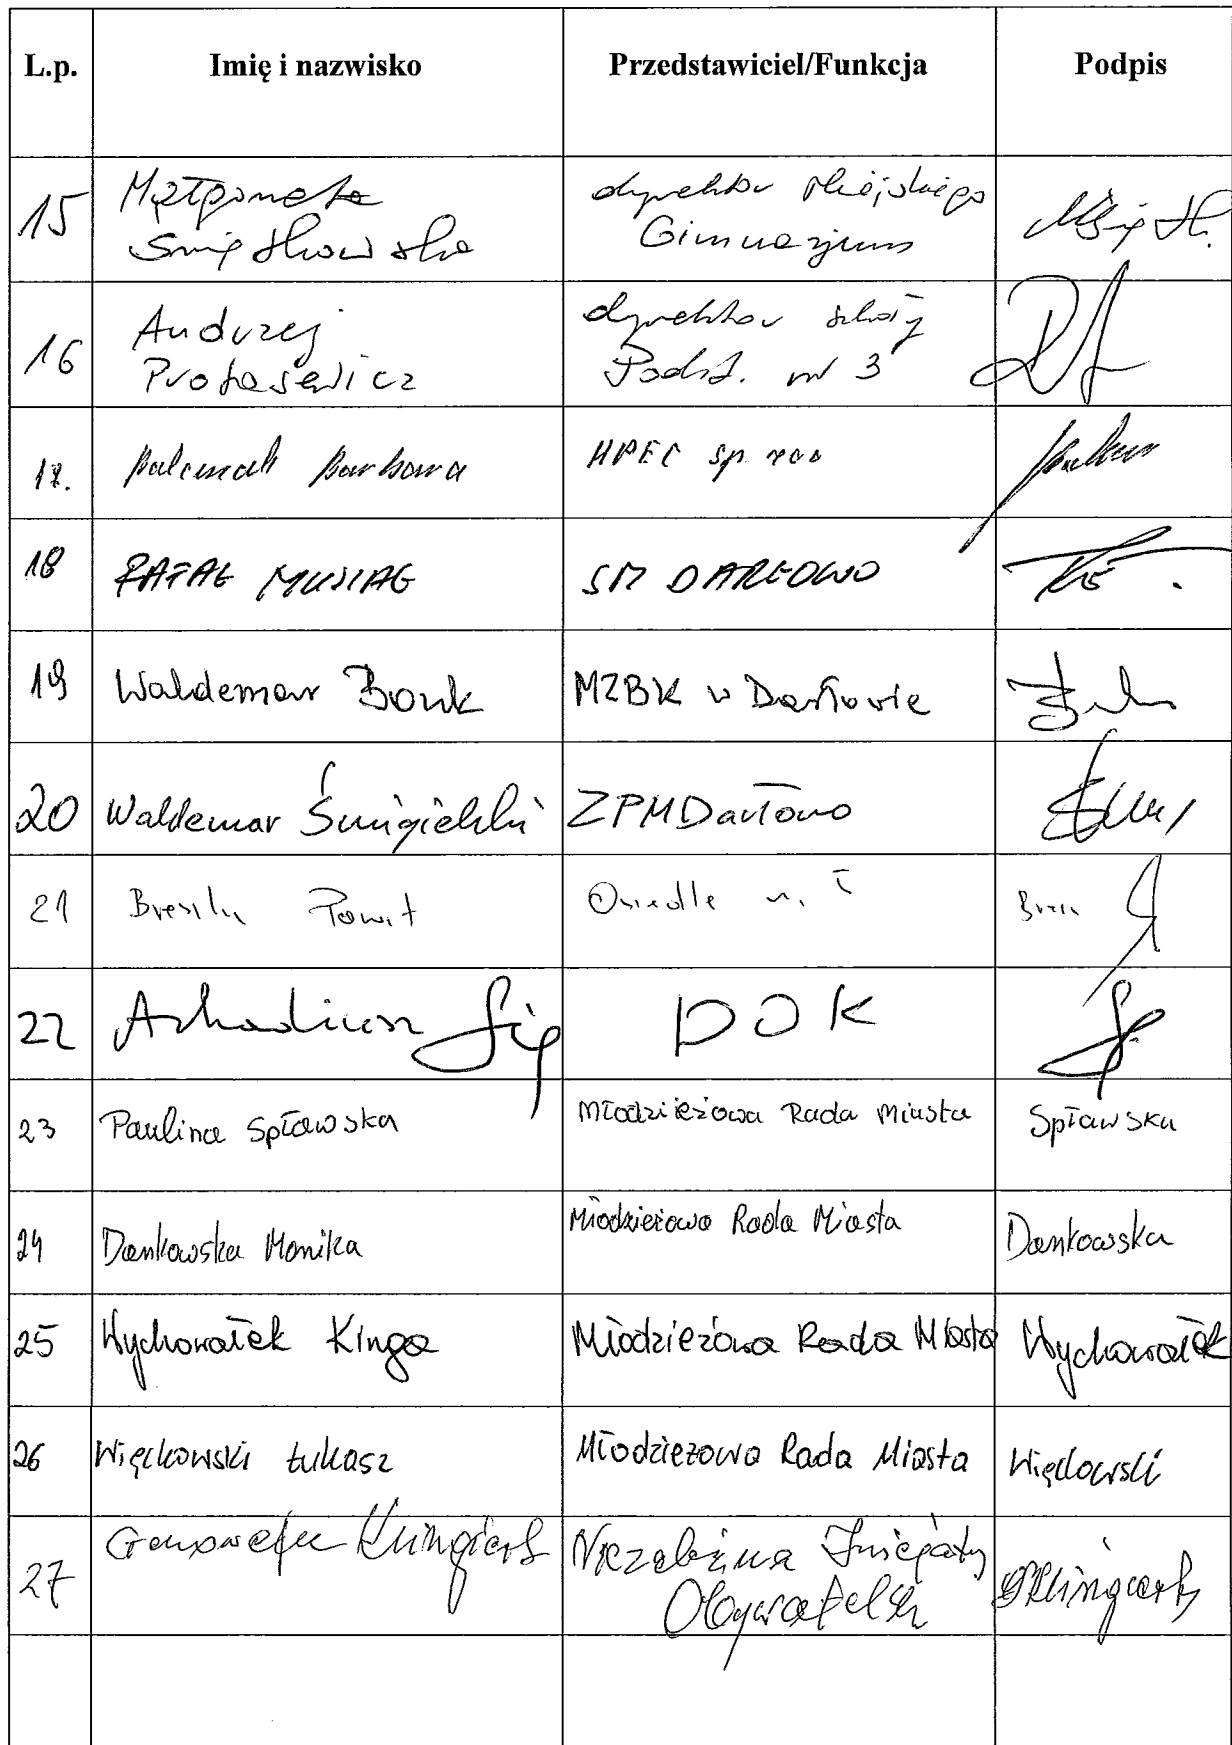 L.p. Imię i nazwisko Przedstawiciel/Funkcja Podpis
15 Małgorzata dyrektor Miejskiego
Gimnazjum
16 Andrzej dyrektor szkoły
Protasewicz Podst. nr 3
17. Barbara MPEC sp. zoo
18 RAFAŁ MUSIAŁ SM DARŁOWO
19 Waldemar Bonk MZBK w Darłowie
20 Waldemar Śmigielski ZPM Darłowo
21 Osiedle
22 Arkadiusz Sip DOK
23 Paulina Spławska Młodzieżowa Rada Miasta Spławska
24 Dankowska Monika Młodzieżowa Rada Miasta Dankowska
25 Wychowałek Kinga Młodzieżowa Rada Miasta Wychowałek
26 Więckowski Łukasz Młodzieżowa Rada Miasta Więckowski
27 Genowefa Niezależna
Obywatelska